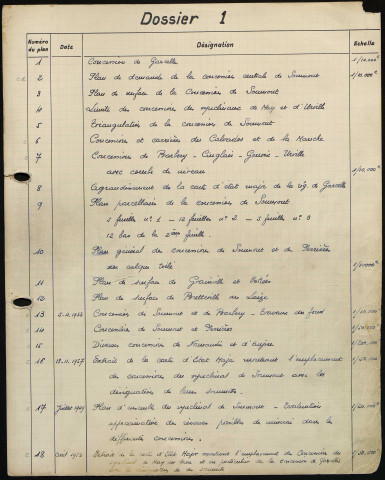 Dossier 1
Numéro du plan Date Désignation Echelle
1 Concession de Garcelles 1/10.000e
2 Plan de demande de la concession centrale de Soumont 1/10.000e
3 Plan de surface de la Concession de Soumont
4 Limite des concessions des synclinaux de May et d'Urville
5 Triangulation de la concession de Soumont
6 Concessions et carrières du Calvados et de la Manche
7 Concessions de Barbery - Cinglais - Gouvix - Urville
avec courbes de niveau 1/20.000e
8 Agrandissement de la carte d'état major de la rég. de Garcelles
9 Plan parcellaire de la concession de Soumont
3 feuilles n° 1 - 12 feuilles n° 2 - 3 feuilles n° 3
12 bas de la 2ème feuille.
10 Plan général des concessions de Soumont et de Perrières
des calque toilé
11 Plan de surface de Grainville et
12 Plan de surface Bretteville sur Laize
13 Concession de Soumont et de Barbery -
14 Concession de Soumont et Perrières
15 Diverses concessions de Normandie et d'Anjou
16 18.11.1927 Extrait de la carte d'Etat Major montrant l'emplacement
des concessions du synclinal de Soumont avec les
désignations de leurs sommets.
17 Juillet Plan d'ensemble du synclinal de Soumont - Evaluation
approximative des réserves possibles de minerais dans les
différentes concessions.
18 Extrait de la carte d'Etat Major montrant l'emplacement des Concessions du
synclinal de May sur Orne et en particulier de la concession de Garcelles
avec la désignation de ses sommets